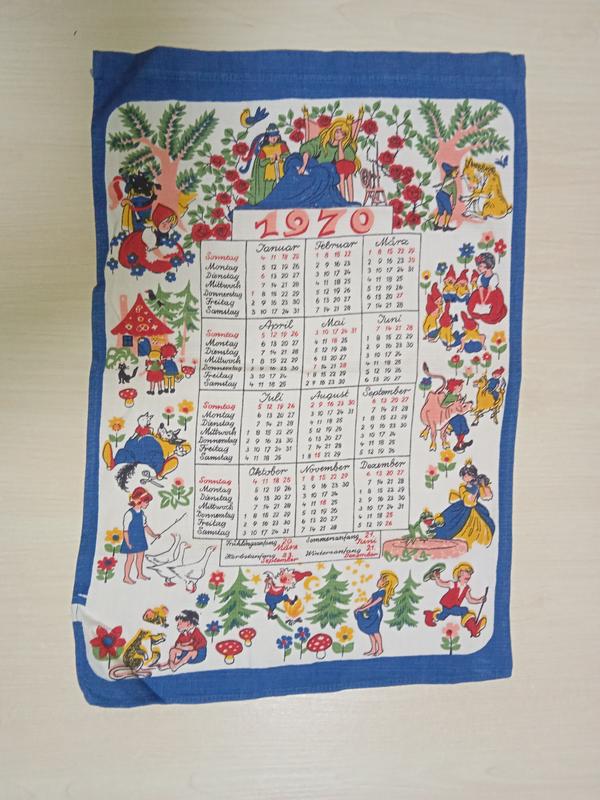 1970
Januar Februar März
Sonntag 4 11 18 25 1 8 15 22 1 8 15 22 29
Montag 5 12 19 26 2 9 16 23 2 9 16 23 30
Dienstag 6 13 20 27 3 10 17 24 3 10 17 24 31
Mittwoch 7 14 21 28 4 11 18 25 4 11 18 25
Donnerstag 1 8 15 22 29 5 12 19 26 5 12 19 26
Freitag 2 9 16 23 30 6 13 20 27 6 13 20 27
Samstag 3 10 17 24 31 7 14 21 28 7 14 21 28
April Mai Juni
Sonntag 5 12 19 26 3 10 17 24 31 7 14 21 28
Montag 6 13 20 27 4 11 18 25 1 8 15 22 29
Dienstag 7 14 21 28 5 12 19 26 2 9 16 23 30
Mittwoch 1 8 15 22 29 6 13 20 27 3 10 17 24
Donnerstag 2 9 16 23 30 7 14 21 28 4 11 18 25
Freitag 3 10 17 24 1 8 15 22 29 5 12 19 26
Samstag 4 11 18 25 2 9 16 23 30 6 13 20 27
Juli August September
Sonntag 5 12 19 26 2 9 16 23 30 6 13 20 27
Montag 6 13 20 27 3 10 17 24 31 7 14 21 28
Dienstag 7 14 21 28 4 11 18 25 1 8 15 22 29
Mittwoch 1 8 15 22 29 5 12 19 26 2 9 16 23 30
Donnerstag 2 9 16 23 30 6 13 20 27 3 10 17 24
Freitag 3 10 17 24 31 7 14 21 28 4 11 18 25
Samstag 4 11 18 25 1 8 15 22 29 5 12 19 26
Oktober November Dezember
Sonntag 4 11 18 25 1 8 15 22 29 6 13 20 27
Montag 5 12 19 26 2 9 16 23 30 7 14 21 28
Dienstag 6 13 20 27 3 10 17 24 1 8 15 22 29
Mittwoch 7 14 21 28 4 11 18 25 2 9 16 23 30
Donnerstag 1 8 15 22 29 5 12 19 26 3 10 17 24 31
Freitag 2 9 16 23 30 6 13 20 27 4 11 18 25
Samstag 3 10 17 24 31 7 14 21 28 5 12 19 26
Frühlingsanfang 20. März Sommeranfang 21. Juni
Herbstanfang 23. September Winteranfang 21. Dezember